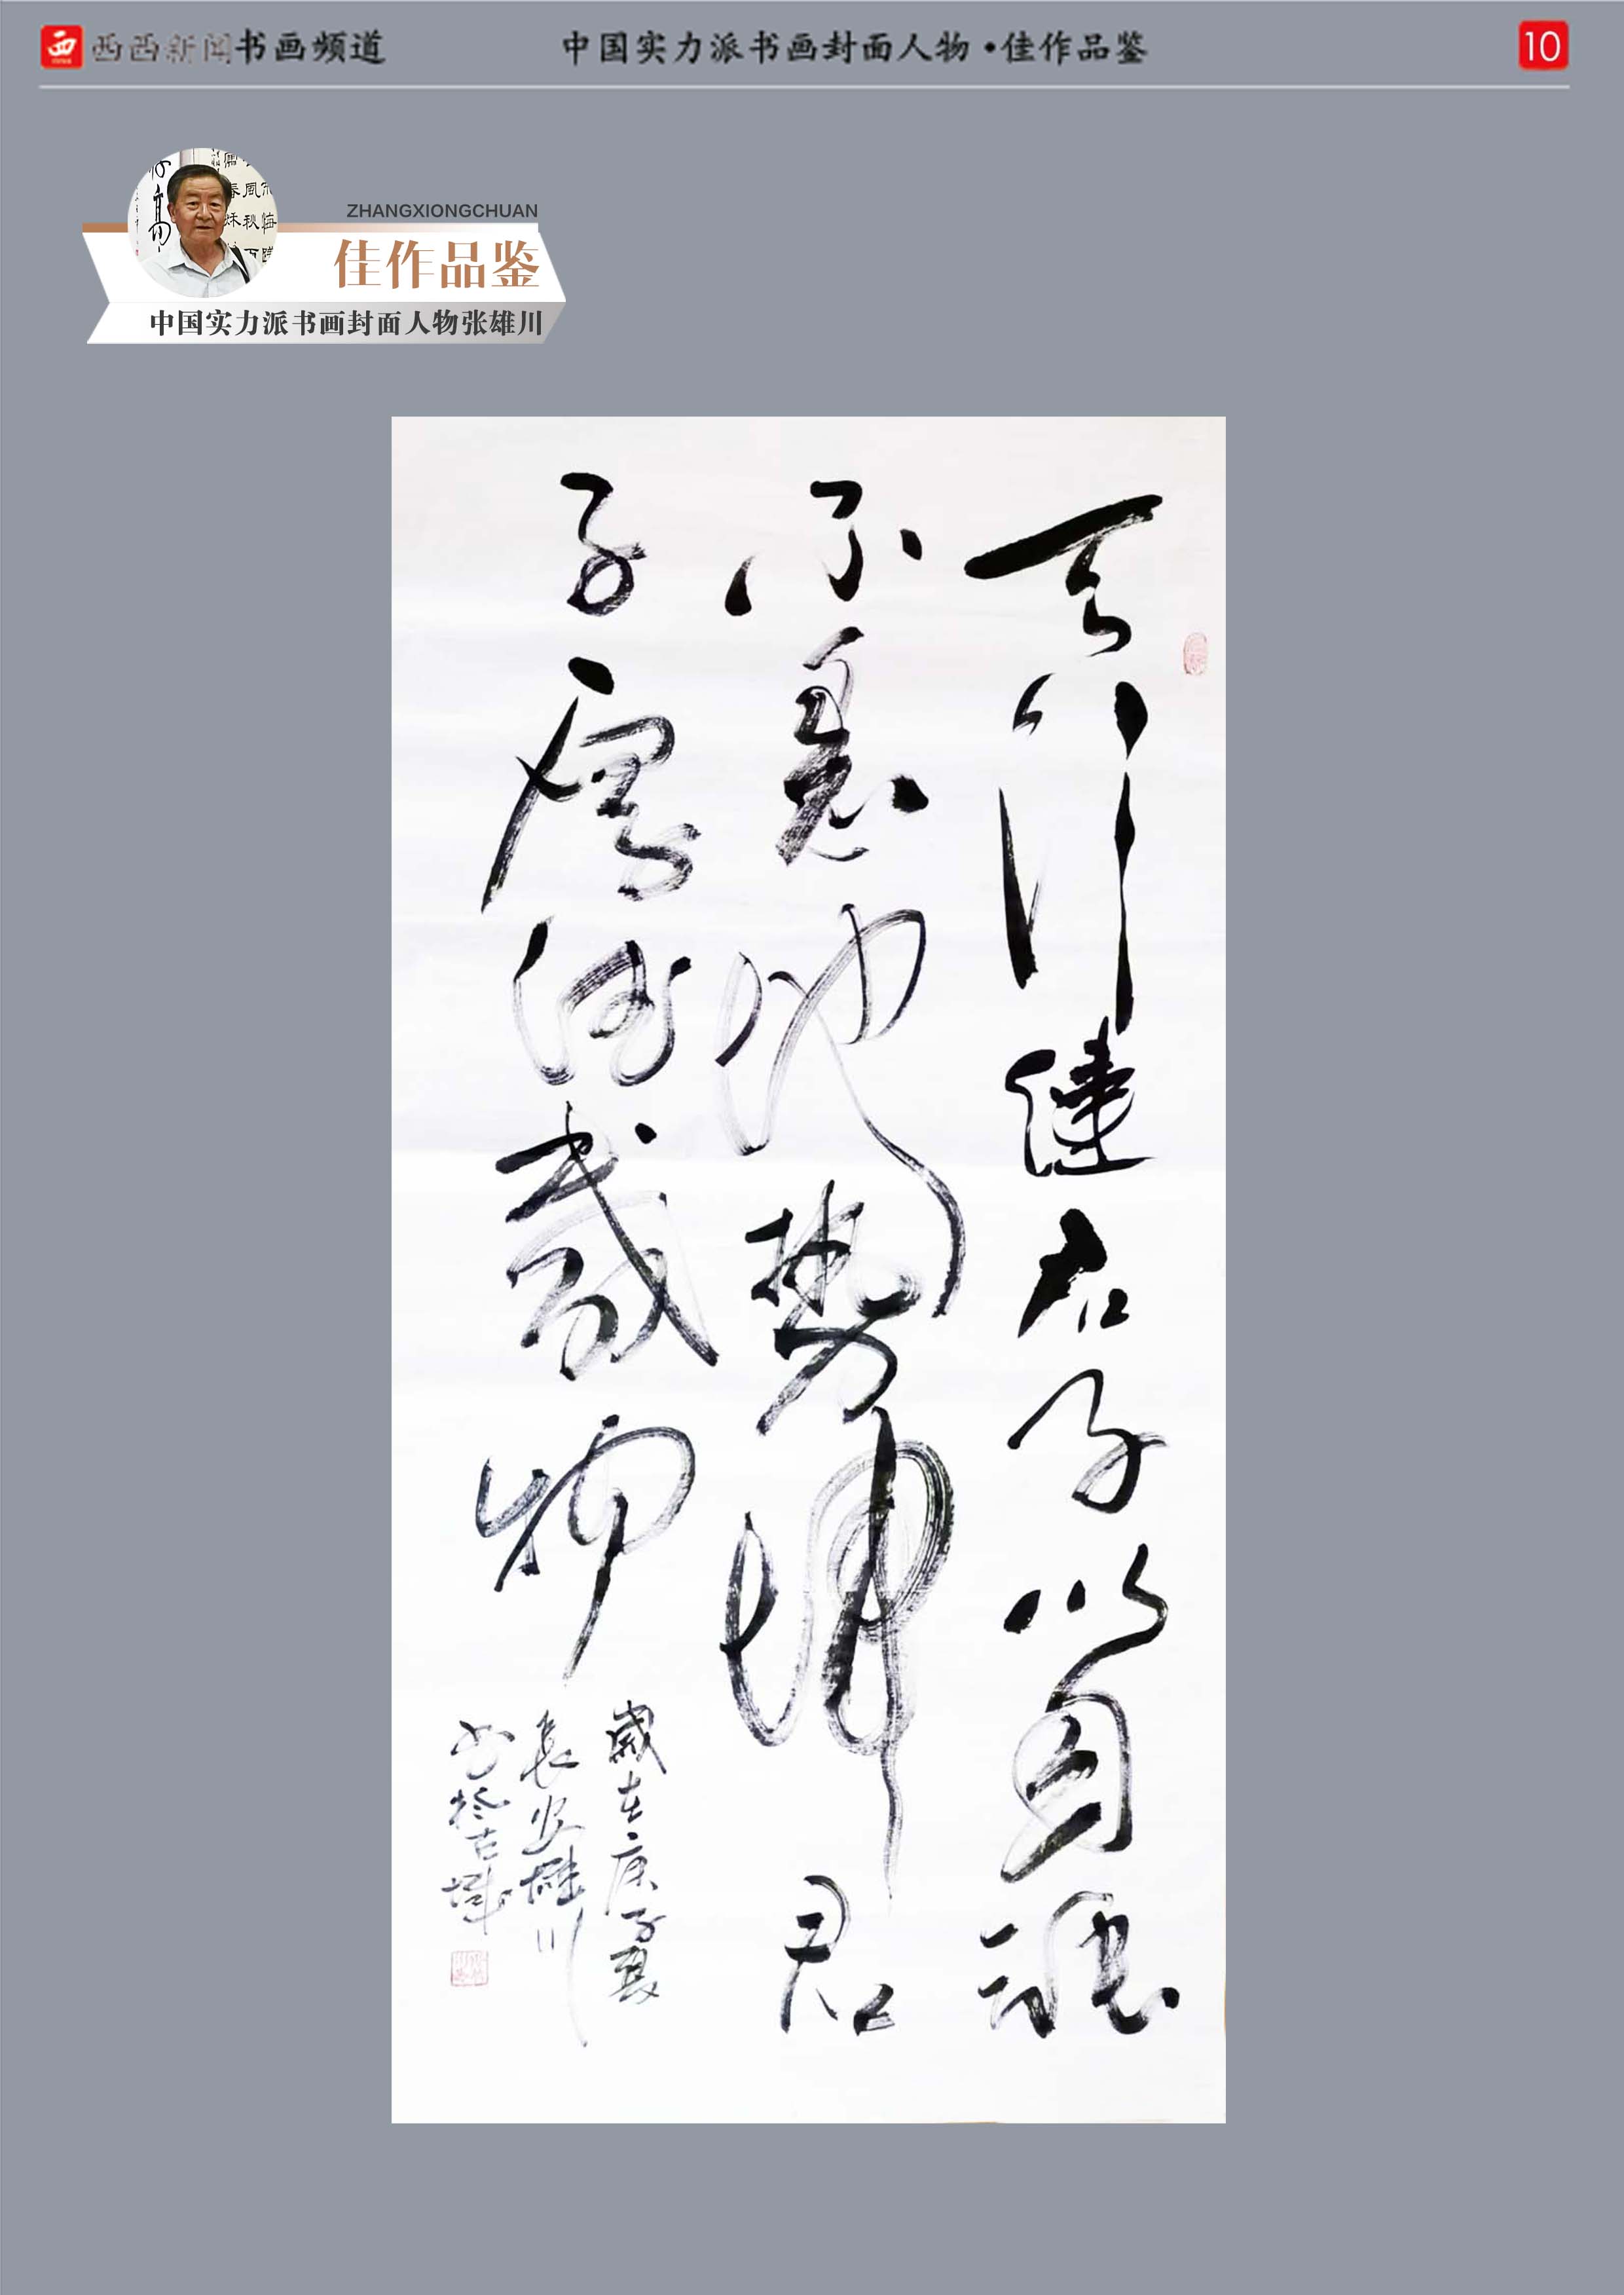 西
西西新闻书画频道
中国实力派书画封面人物·佳作品鉴
10
ZHANGXIONGCHUAN
佳作品鉴
中国实力派书画封面人物张雄川
天行健君子以自強
不息地势坤君
子厚德載物
歲在庚子夏
長安雄川
书於古城